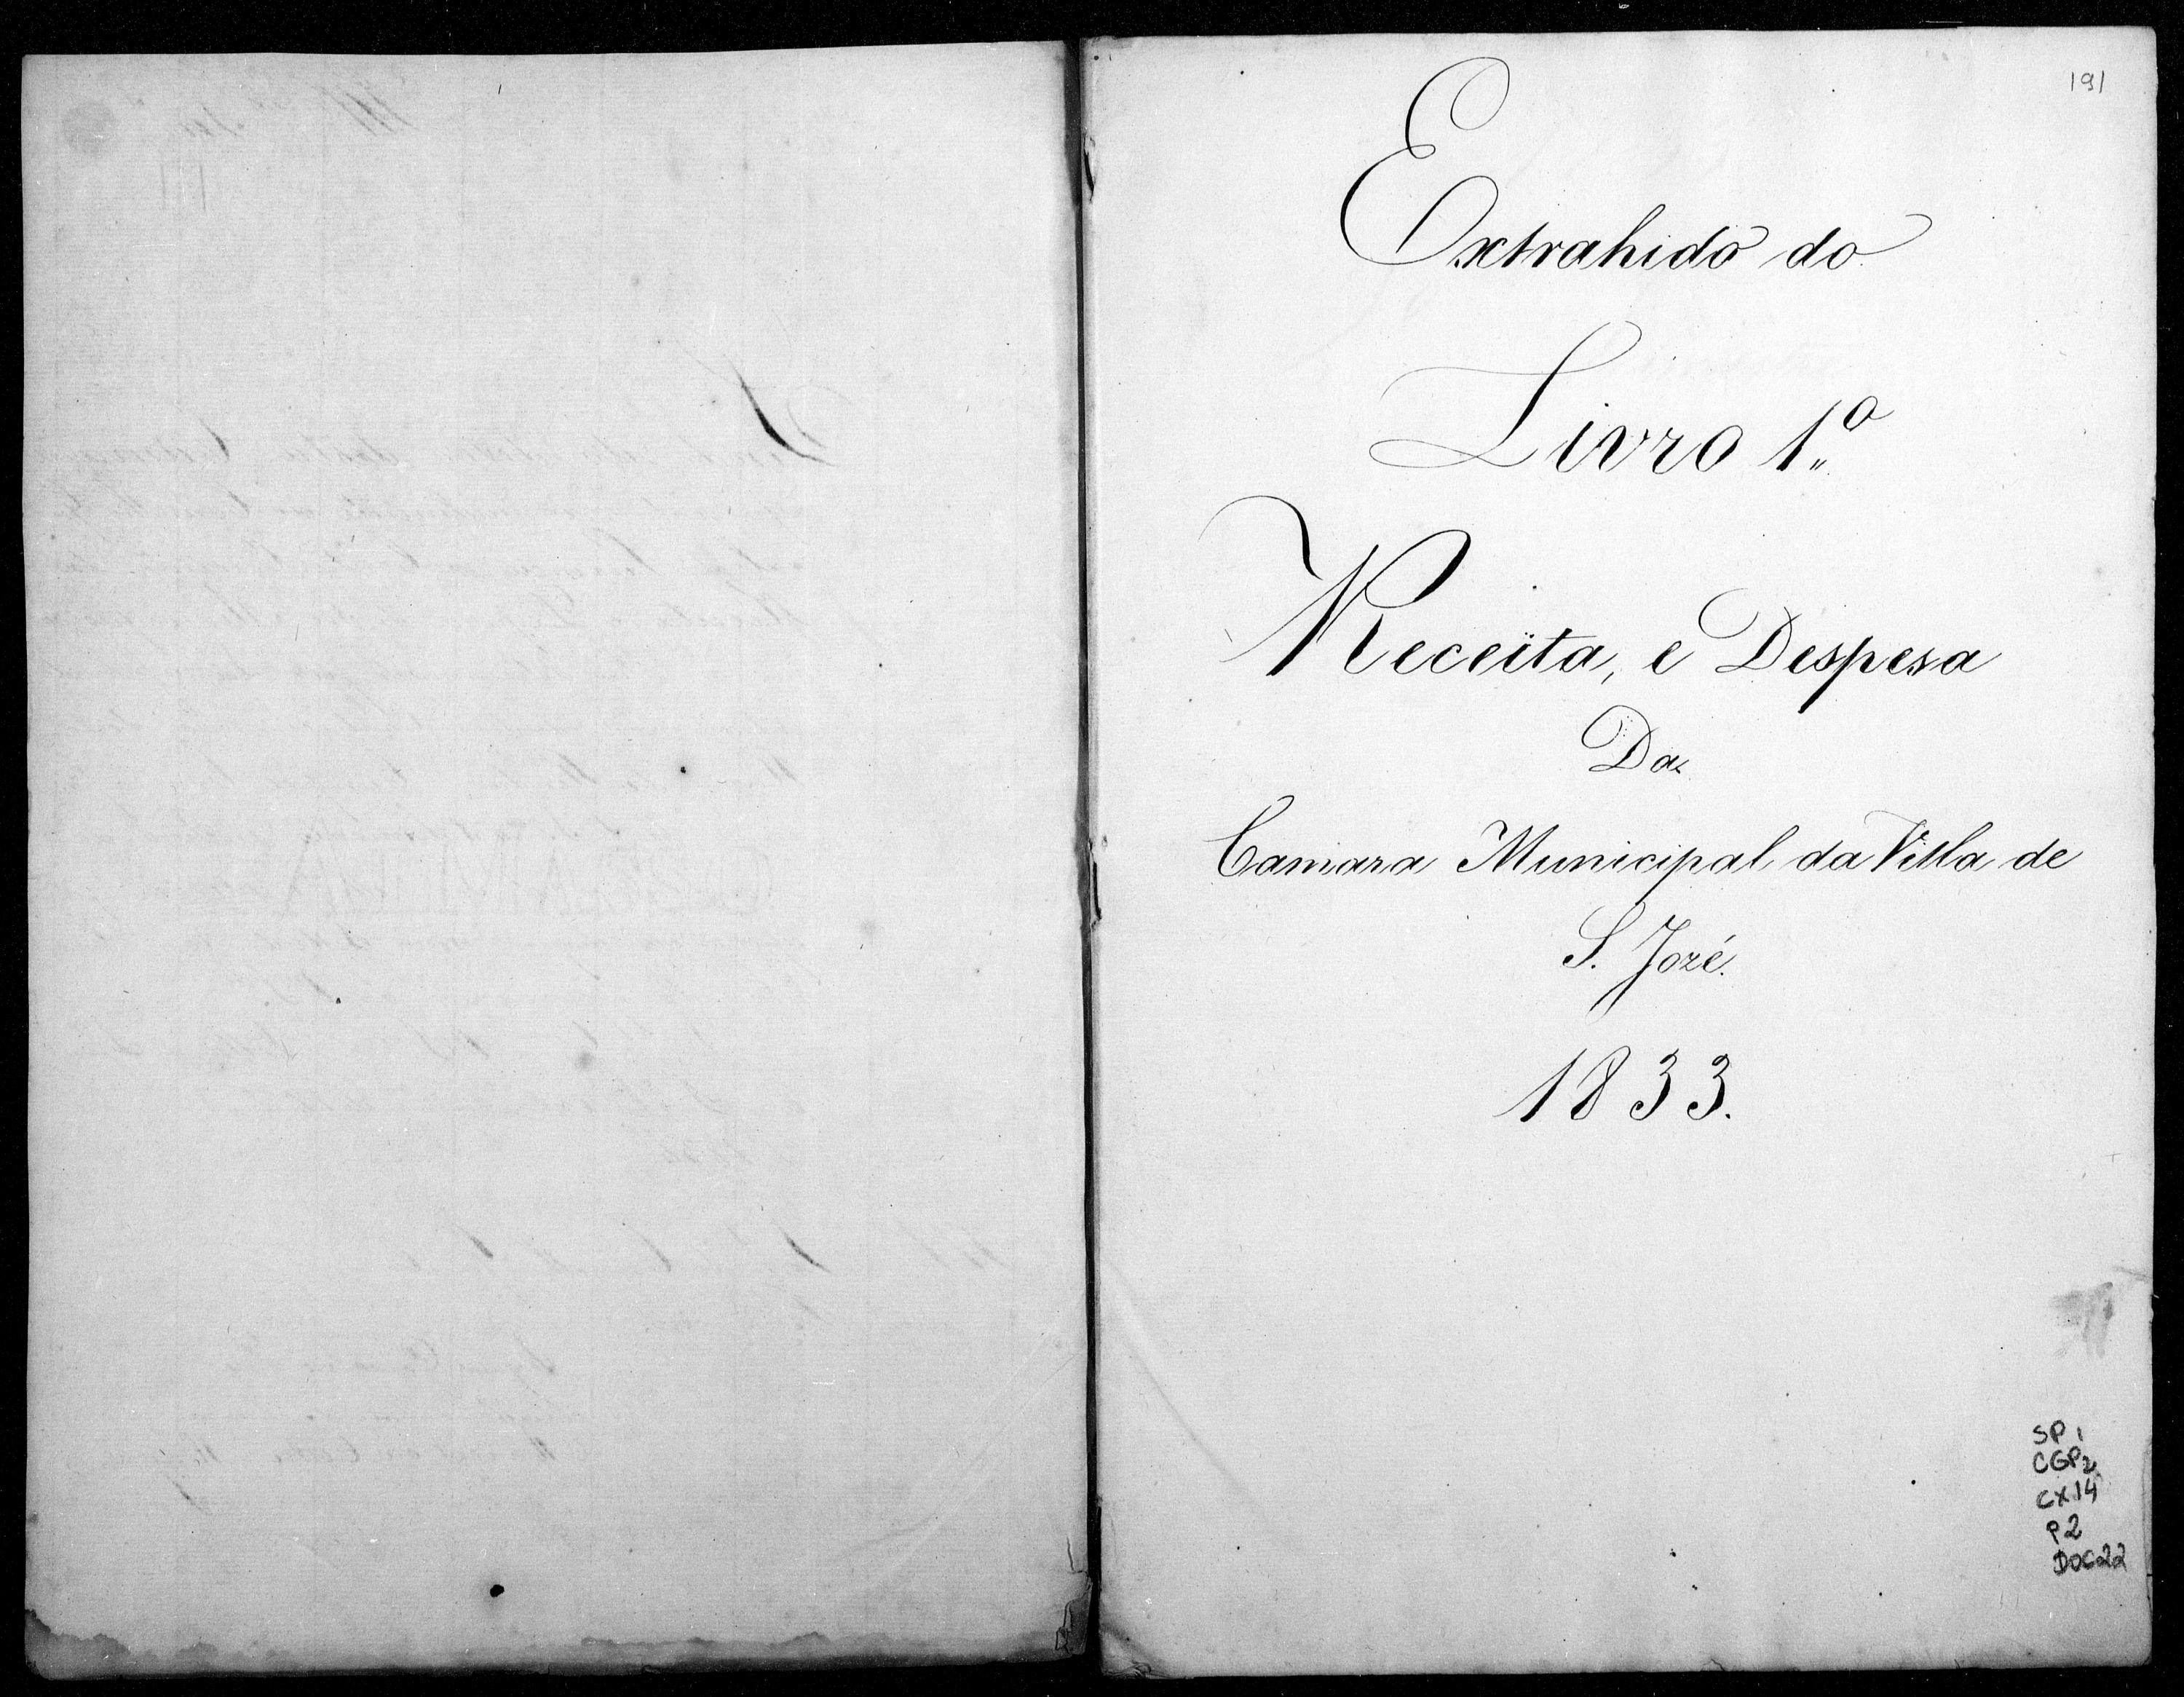 191
Extrahido do
Livro 1º
Receita, e Despesa
Da
Camara Municipal da Villa de
S. Jozé.
1833.
SP1
CGP2
CX14
P2
DOC22